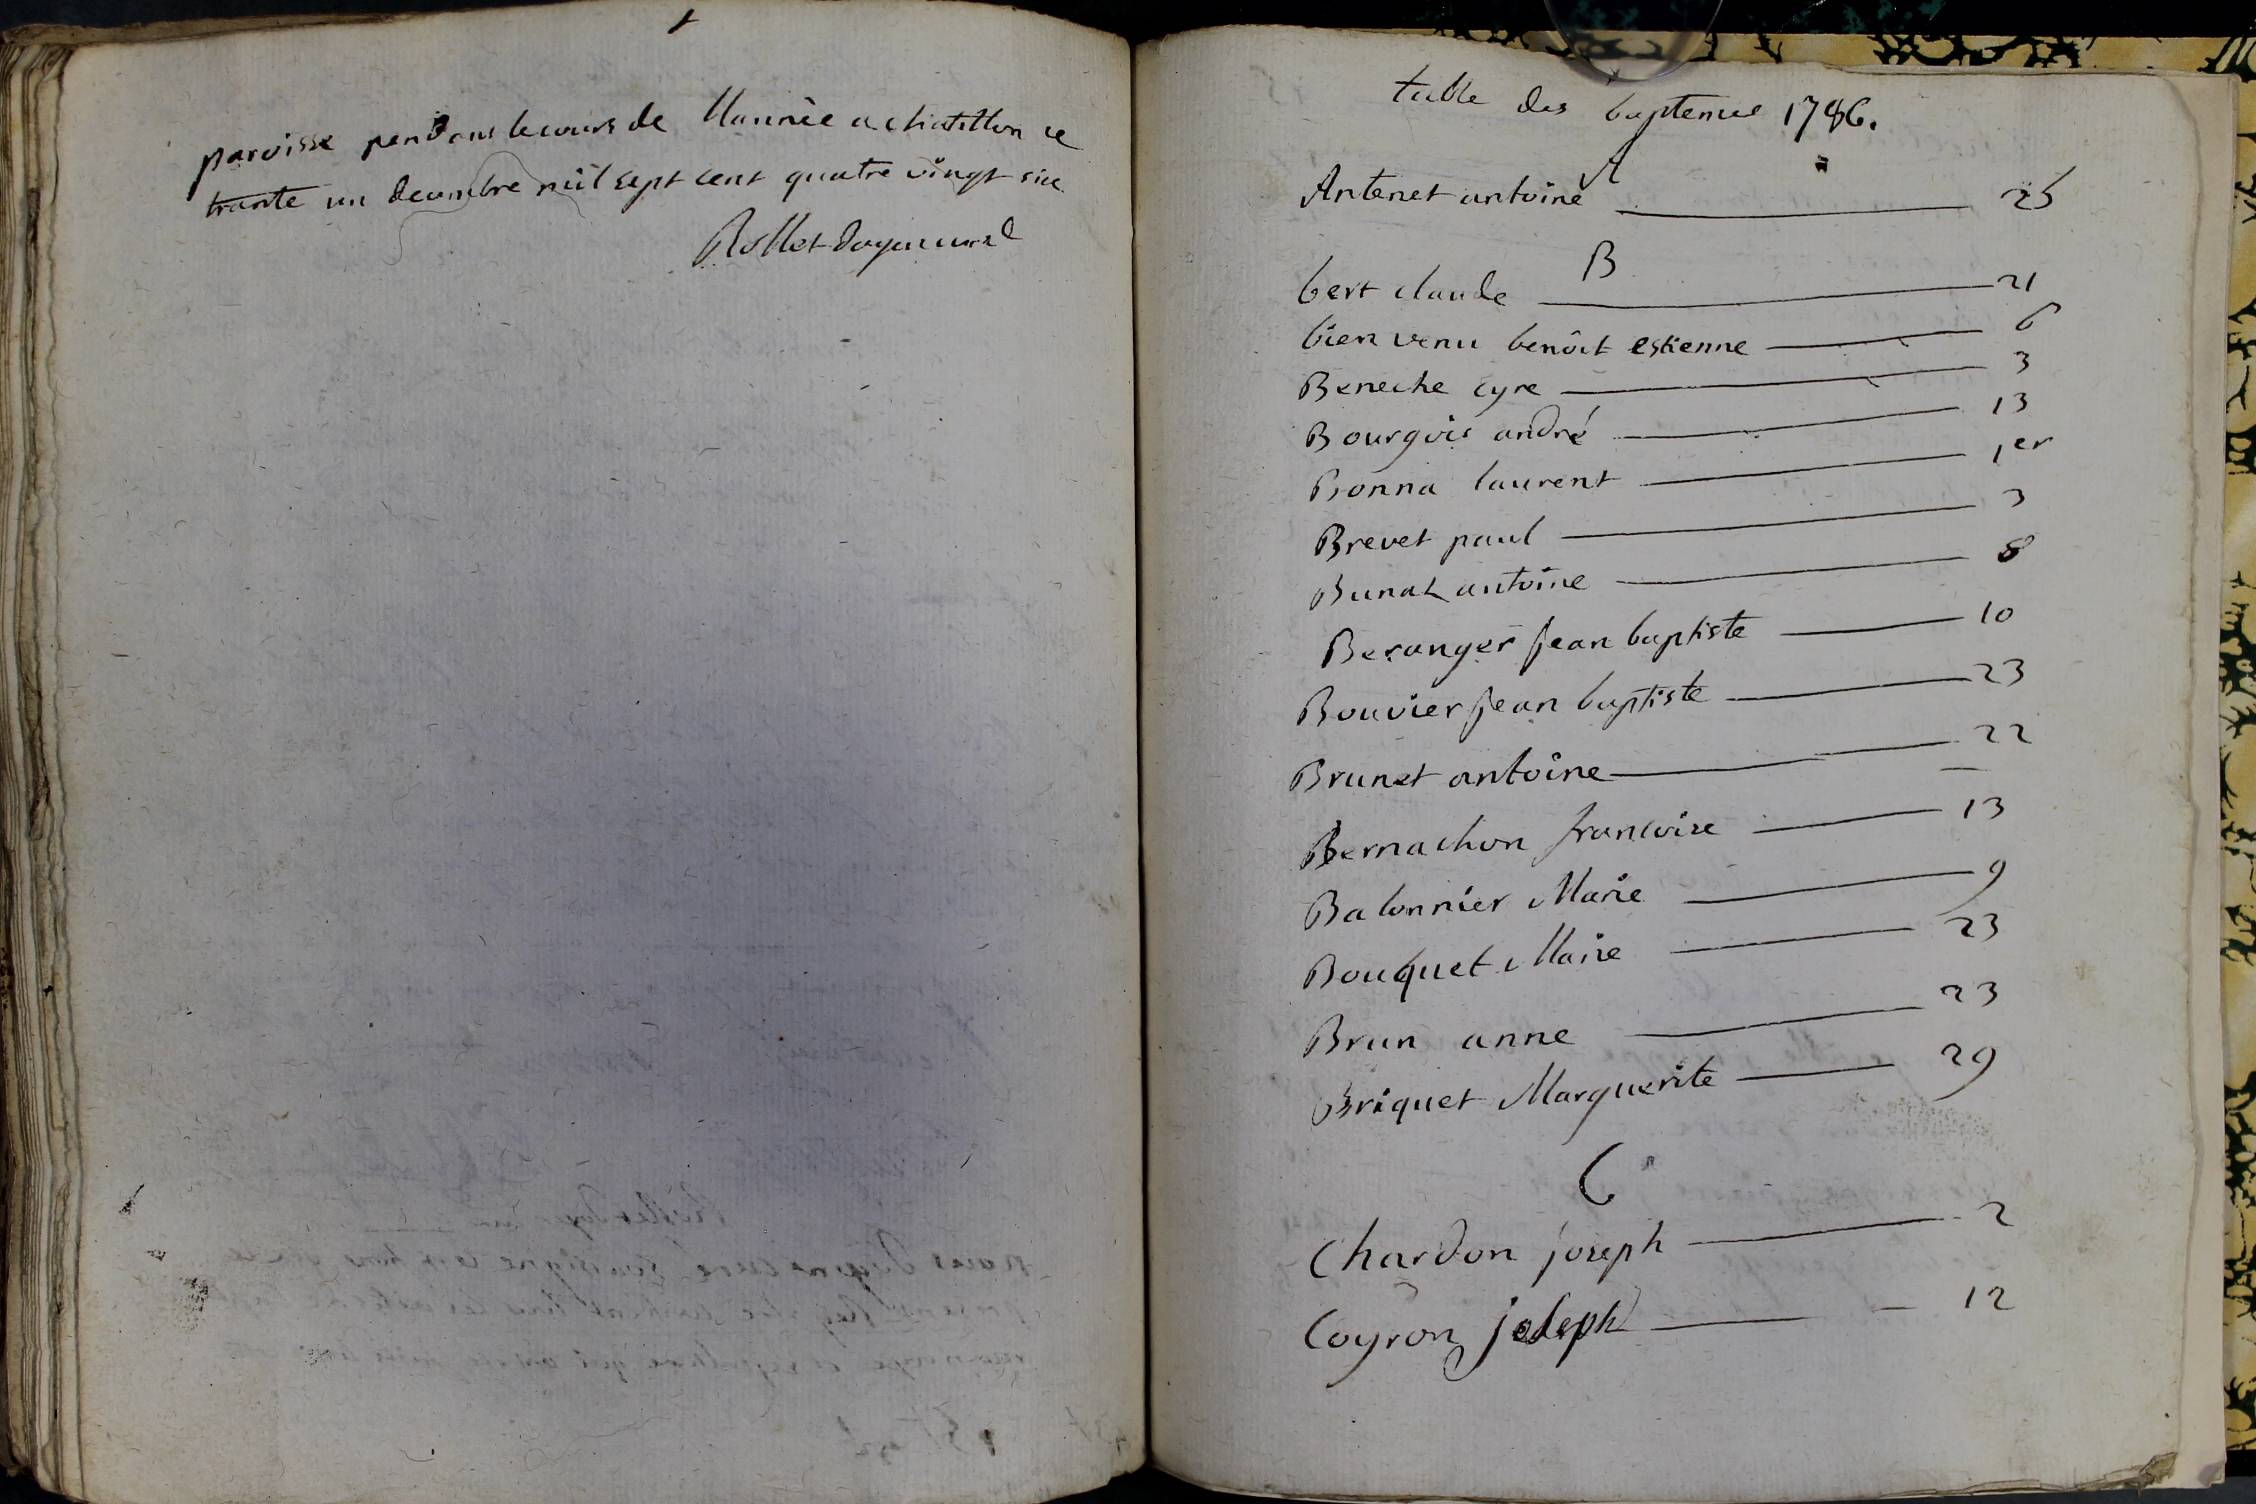 paroisse pendant le cours de l'année a chatillon ce
trante un decembre mil sept cent quatre vingt six
Rollet doyen curé
table des baptemes 1786.
A
Antenet antoine 25
B
bert claude 21
bien venu benoit estienne 6
Beneche cyre 3
Bourgois andré 13
Bonna laurent 1er
Brevet paul 3
Bunat antoine 8
Beranger jean baptiste 10
Bouvier jean baptiste 23
Brunet antoine 22
Bernachon francoise 13
Balonnier Marie 9
Bouquet Marie 23
Brun anne 23
Briquet Marguerite 29
C
Chardon joseph 2
Coyron joseph 12